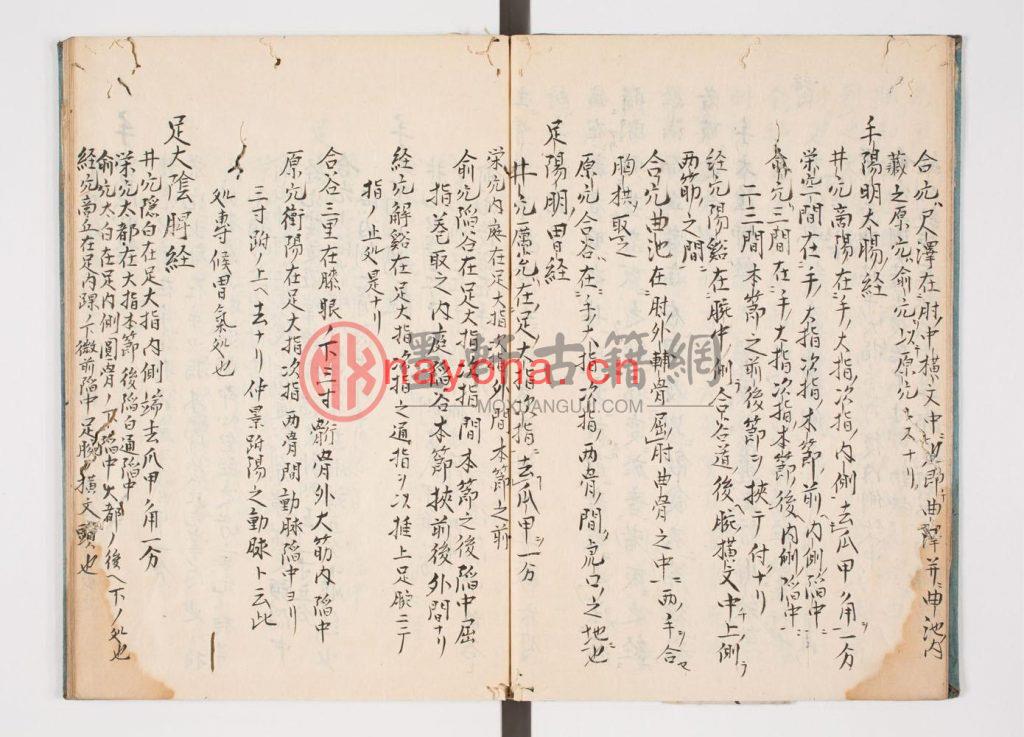 合穴尺澤在肘ノ中横文中ニ
藏之原穴兪穴以原穴トスナリ
手陽明太腸経
井穴商陽在手ノ大指次指ノ内側ニ去爪甲ノ角一分
栄穴二間在手ノ大指次指本節前ノ内側陥中ニ
兪穴三間在手ノ大指次指ノ本節後ノ内側陥中ニ
二三間本節之前後節ヲ挾テ付ナリ
経穴陽谿在腕中ノ側合谷道ノ後腕横文中上側ノ
両筋ノ之間ニ
合穴曲池在肘外輔骨屈肘曲骨之中ニ両手ヲ合
胸拱取之
原穴合谷在手ノ大指次指両骨間虎口之地也
足陽明胃経
井穴厲兌在足ノ大指次指去爪甲一分
栄穴内庭在足大指次指外間本節之前
兪穴陥谷在足大指次指間本節之後陥中屈
指巻取之内庭陥谷本節挾前後外間ナリ
経穴解谿在足大指次指之通指ヲ以推上足腕ニテ
指ノ止処是ナリ
合谷三里在膝眼ノ下三寸䯒骨外大筋内陥中
原穴衝陽在足大指次指両骨間動脉陥中ヨリ
三寸跗ノ上ヘ去ナリ仲景跗陽之動脉ト云此
処専候胃氣処也
足大陰脾経
井穴隠白在足大指内側端去爪甲角一分
栄穴太都在大指本節後陥白通陥中
兪穴太白在足内側圓骨ノ下陥中大都ノ後ヘ下ノ処也
経穴商丘在足内踝ノ下微前陥中足腕ノ横文頭也
墨軒古籍網
nayona.cn
MOXUANGUJI.COM